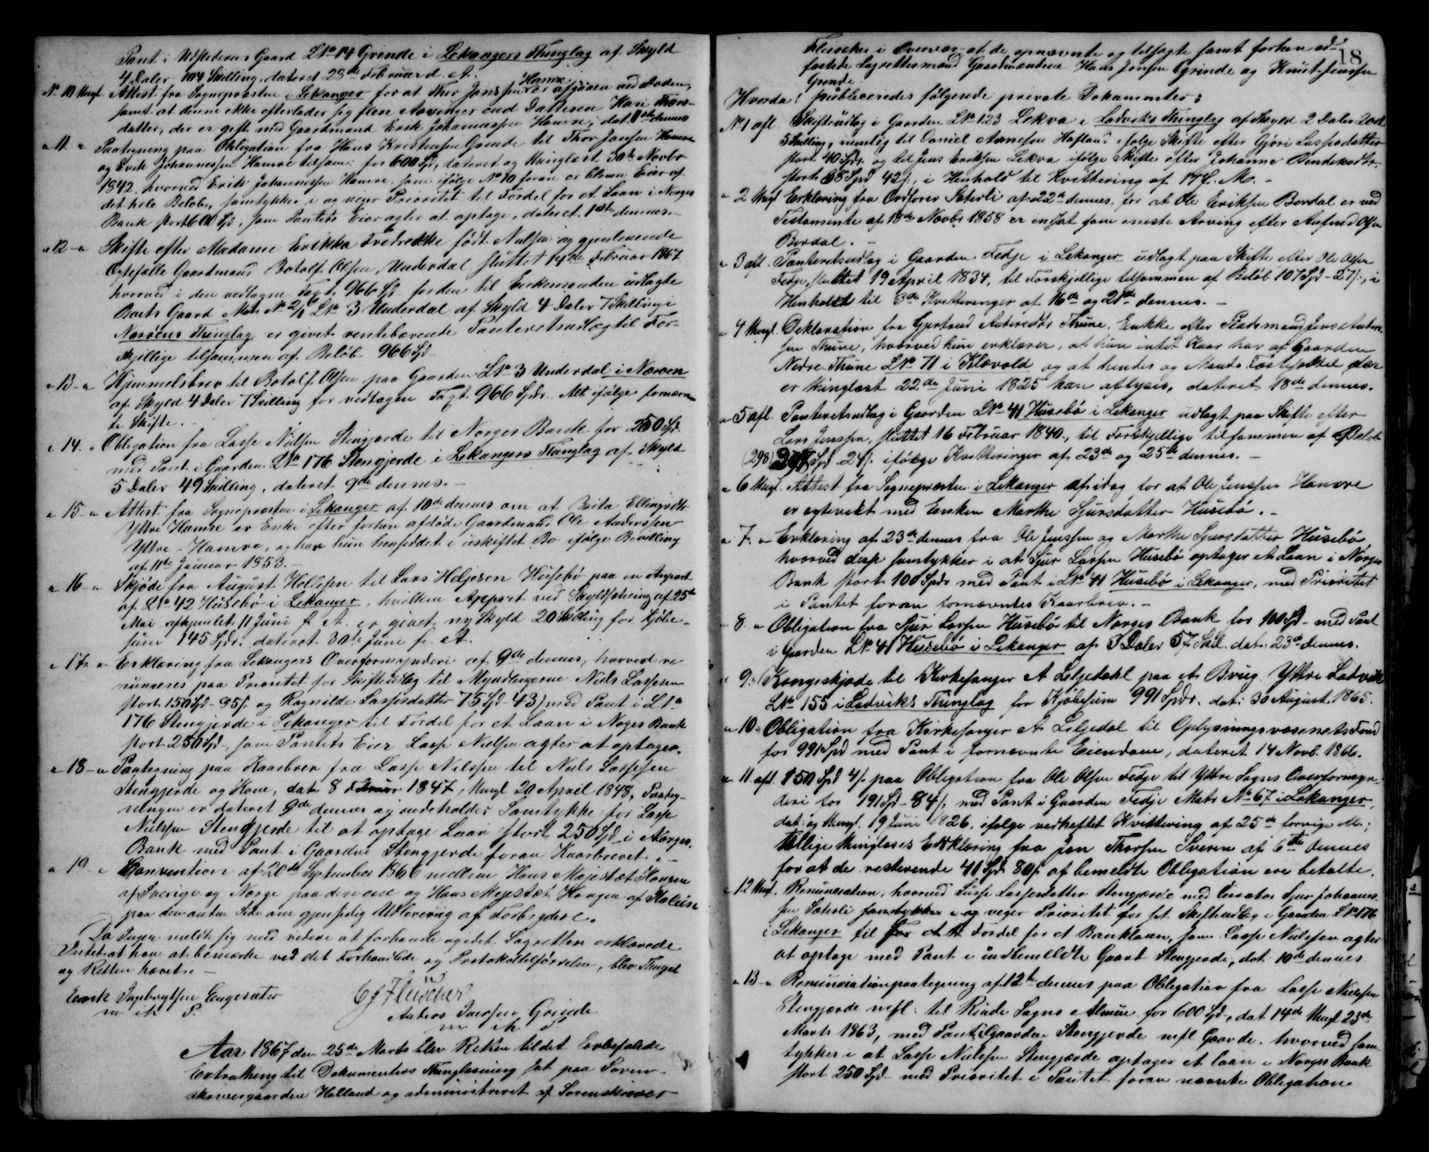 Pant i Uskiftede Gaard LNo 14 Grinde i Lekangers Thinglag af Skyld
4 Daler 104 Skilling, dateret 28de Februar d. A.
No 10 thingl. Attest fra Sognepræsten i Lekanger for at Thor Jonssen Hamre er afgaaen ved Døden,
samt at denne ikke efterlader sig flere Arvinger end Datteren Kari Thors-
datter, der er gift med Gaardmand Erik Johannessen Hamre, dat. 1ste dennes
" 11 " Paategning paa Obligation fra Hans Kristensen Grinde til Thor Jonsen Hamre
og Erik Johannessen Hamre tilsam: for 600 Spd, dateret og thinglæst 30te Novbr
1842, hvorved Erik Johannessen Hamre, som ifølge No 10 foran er bleven Eier af
det hele Beløb, samtykker i og veger Prioritet til Fordel for et Laan i Norges
Bank stort 600 Spd, som Pantets Eier agter at optage, dateret 1ste dennes.
" 12 " Skifte efter Madame Erikka Fredrekke født Nielsen og gjenlevende
Ægtefælle Gaardmand Botolf Olsen Underdal sluttet 14de Februar 1867
hvorved i den vedtagne Taxt 966 Spd for den til Enkemanden udlagte
Boets Gaard Mats No 2/4 LNo 3 Underdal af Skyld 4 Daler 7 Skilling i
Nærøens Thinglag er givet rentebærende Panteretsudlæg til For-
skjellige tilsammen af Beløb 966 Spd.
" 13 " Hjemmelsbrev til Botolf Olsen paa Gaarden LNo 3 Underdal i Nærøen
af Skyld 4 Daler 7 Skilling for vedtagen Taxt 966 Spdr. Alt ifølge fornævn-
te Skifte.
" 14. " Obligation fra Lasse Nielsen Stengjerde til Norges Bank for 250 Spd
med Pant i Gaarden LNo 176 Stengjerde i Lekangers Thinglag af Skyld
5 Daler 49 Skilling, dateret 9de dennes.
" 15 " Attest fra Sognepræsten i Lekanger af 10de dennes om at Brita Ellingsdtr
Yttre Hamre er Enke efter forhen afdøde Gaardmand Ole Anderssen
Yttre-Hamre, og har hun hensiddet i uskiftet Bo ifølge Bevilling
af 11te Januar 1853.
" 16 " Skjøde fra August Helgesen til Lars Helgesen Husebø paa en Anpart
af LNo 42 Husebø i Lekanger, hvilken Anpart ved Skyldsdeling af 25de
Mai afhjemlet 11 Juni f. A. er givet ny Skyld 20 Skilling for Kjøbe-
sum 145 Spdr. dateret 30te Juni f. A.
" 17 " Erklæring fra Lekangers Overformynderi af 9de dennes, hvorved re-
nunceres paa Prioritet for Skifteudlæg til Myndlingerne Niels Lassesen
stort 150 Spd 85 s. og Ragnilde Lassesdatter 75 Spd 43 s. med Pant i LNo
176 Stengjerde i Lekanger til Fordel for et Laan i Norges Bank
stort 250 Spd, som Pantets Eier Lasse Nielsen agter at optage.
" 18 " Paategning paa Kaarbrev fra Lasse Nielsen til Niels Lassesen
Stengjerde og Kone, dat. 8 Februar 1847, thingl. 20 April 1848, Paateg-
ningen er dateret 9de dennes og indeholder Samtykke for Lasse
Nielsen Stengjerde til at optage Laan stort 250 Spd i Norges
Bank med Pant i Gaarden Stengjerde foran Kaarbrevet.
" 19 " Convention af 20de September 1866 mellem Hans Majestæt Kongen
af Sverige og Norge paa den ene og Hans Majestæt Kongen af Italien
paa den anden Side om gjensidig Udlevering af Forbrydere.
Da Ingen meldte sig med videre at forhandle og det Lagretten erklærede
Intet at have at bemærke ved det Forhandlede og Protokoltilførselen, blev Thinget
og Retten hævet.
Enevik Ingebrigtsen Engesæter
m. i. P.
C J Fleischer
Anders Jacobsen Grinde
m. i. P.
Aar 1867 den 25de Marts blev Retten til det Anbefalede
Extrathing til Dokumenters Thinglæsning sat paa Soren-
skrivergaarden Holland og administreret af Sorenskriver
18
Fleischer i Overvær af de opnævnte og tilsagte samt forhen ed-
fæstede Lagrettesmænd Gaardmændene Hans Jonsen Grinde og Knut Jenssen
Grinde.
Hvorda: publiceredes følgende private Dokumenter:
No 1 afl. Skifteudlæg i Gaarden LNo 123 Lekva i Ladviks Thinglag af Skyld 2 Daler 2 Ort
3 Skilling, nemlig til Daniel Aamesen Hofland ifølge Skifte efter Gjøri Lassesdatter
stort 40 Spdr. og til Jens Eriksen Lekva ifølge Skifte efter Johanne Bendiksdtr.
stort 38 Spd 42 s., i Henhold til Kvittering af 17 f. M.
" 2 thingl. Erklæring fra Ordfører Sæterli af 22de dennes, for at Ole Eriksen Berdal er ved
Testamente af 18de Novbr 1858 er indsat som eneste Arving efter Anfind Olsen
Berdal.
" 3 afl. Panteretsudlæg i Gaarden Fedje i Lekanger udlagt paa Skifte efter Ole Olsen
Fedje, sluttet 19 April 1834, til Forskjellige tilsammen af Beløb 107 Spd 27 s., i
Henhold til 3de Kvitteringer af 16de og 21de dennes.
" 4 thingl. Deklaration fra Gjertrud Andersdtr Thune, Enke efter Pladsmand Jens Ander-
sen Thune, hvorved hun erklærer, at hun intet Kaar har af Gaarden
Nedre Thune LNo 71 i Klævold og at hendes og Mands Fæsteseddel der
er thinglæst 22de Juni 1825 kan aflyses, dateret 18de dennes.
" 5 afl. Panteretsudlæg i Gaarden LNo 41 Husebø i Lekanger udlagt paa Skifte efter
Lars Jenssen, sluttet 16 Februar 1840, til Forskjellige tilsammen af Beløb
(298) 298 Spd 24 s. ifølge Kvitteringer af 23de og 25de dennes.
" 6 thingl. Attest fra Sognepræsten i Lekanger af idag for at Ole Jenssen Hamre
er egteviet med Enken Marthe Sjursdatter Husebø.
" 7. " Erklæring af 23de dennes fra Ole Jenssen og Marthe Sjursdatter Husebø
hvorved disse samtykker i at Sjur Larssen Husebø optager et Laan i Norges
Bank stort 100 Spdr med Pant i LNo 41 Husebø i Lekanger, med Prioritet
i Pantet foran fornævntes Kaarbrev.
" 8. " Obligation fra Sjur Larssen Husebø til Norges Bank for 100 Spd med Pant
i Gaarden LNo 41 Husebø i Lekanger af 3 Daler 57 Skil. dat. 23de dennes.
" 9. " Kongeskjøde til Kirkesanger A Liljedahl paa A Brug Yttre Ladvik
LNo 155 i Ladviks Thinglag for Kjøbesum 991 Spdr. dat: 30 August 1865.
" 10. " Obligation fra Kirkesanger A Liljedal til Oplysningsvæsenets Fond
for 991 Spd med Pant i fornævnte Eiendom, dateret 14 Novb. 1866.
" 11 afl. 150 Spd 4 s. paa Obligation fra Ole Olsen Fedje til Yttre Sogns Overformyn-
deri for 191 Spd 84 s. med Pant i Gaarden Fedje Mats No 67 i Lekanger,
dat: og thingl. 19 Juni 1826, ifølge vedheftet Kvittering af 25de forrige M.;
tillige thinglæses Erklæring fra Jon Thorsen Sværen af 6te dennes
for at de resterende 41 Spd 80 s. af bemeldte Obligation ere betalte.
" 12 thingl. Renunciation, hvorved Sissie Lassesdatter Stengjerde med Curator Sjur Johannes-
sen Sæterli samtykker i og veger Prioritet for sit Skifteudlæg i Gaarden LNo 176
i Lekanger til Fordel for et Banklaan, som Lasse Nielsen agter
at optage med Pant i indbemeldte Gaard Stengjerde, dat. 10de dennes
" 13 " Renunciationspaategning af 12te dennes paa Obligation fra Lasse Nielsen
Stengjerde mfl. til Rinde Sogns Almue for 600 Spd, dat 14de thingl. 23de
Marts 1863, med Pant i Gaarden Stengjerde mfl. Gaarde. hvorved sam-
tykkes i at Lasse Nielsen Stengjerde optager et Laan i Norges Bank
stort 250 Spd med Prioritet i Pantet foran nævnte Obligation.